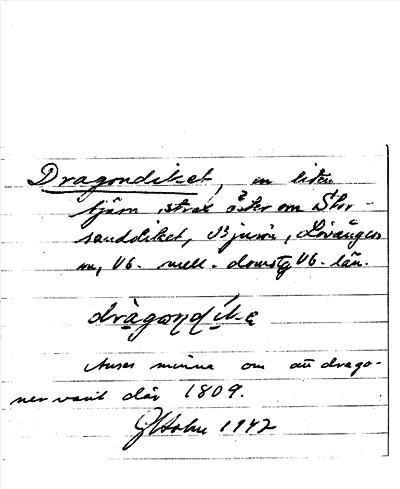 Dragondiket, en liten
tjärn strax öster om Stor-
sanddiket, Bjurön, Lövånger
sn, Vb. mell. domsg Vb. län.
Anses minna om att drago-
ner varit där 1809.
GHolm 1942